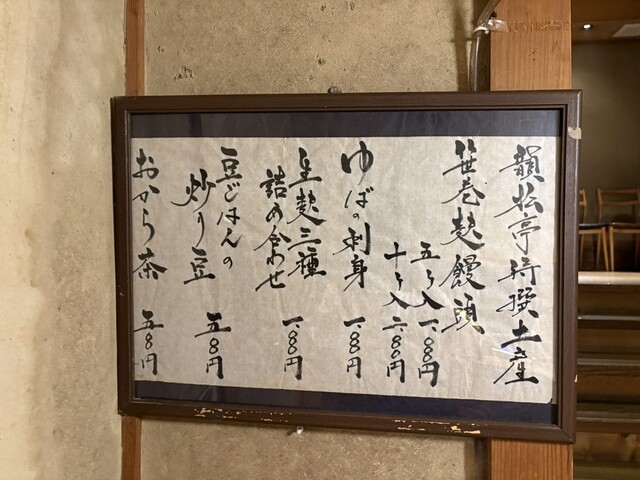 韻松亭特撰土産
笹巻麩饅頭
五ヶ入 一、〇〇円
十ヶ入 二、〇〇円
ゆばの刺身 一、〇〇円
生麩三種
詰め合わせ 一、〇〇円
豆ごはんの
炒り豆 五〇円
おから茶 五〇円